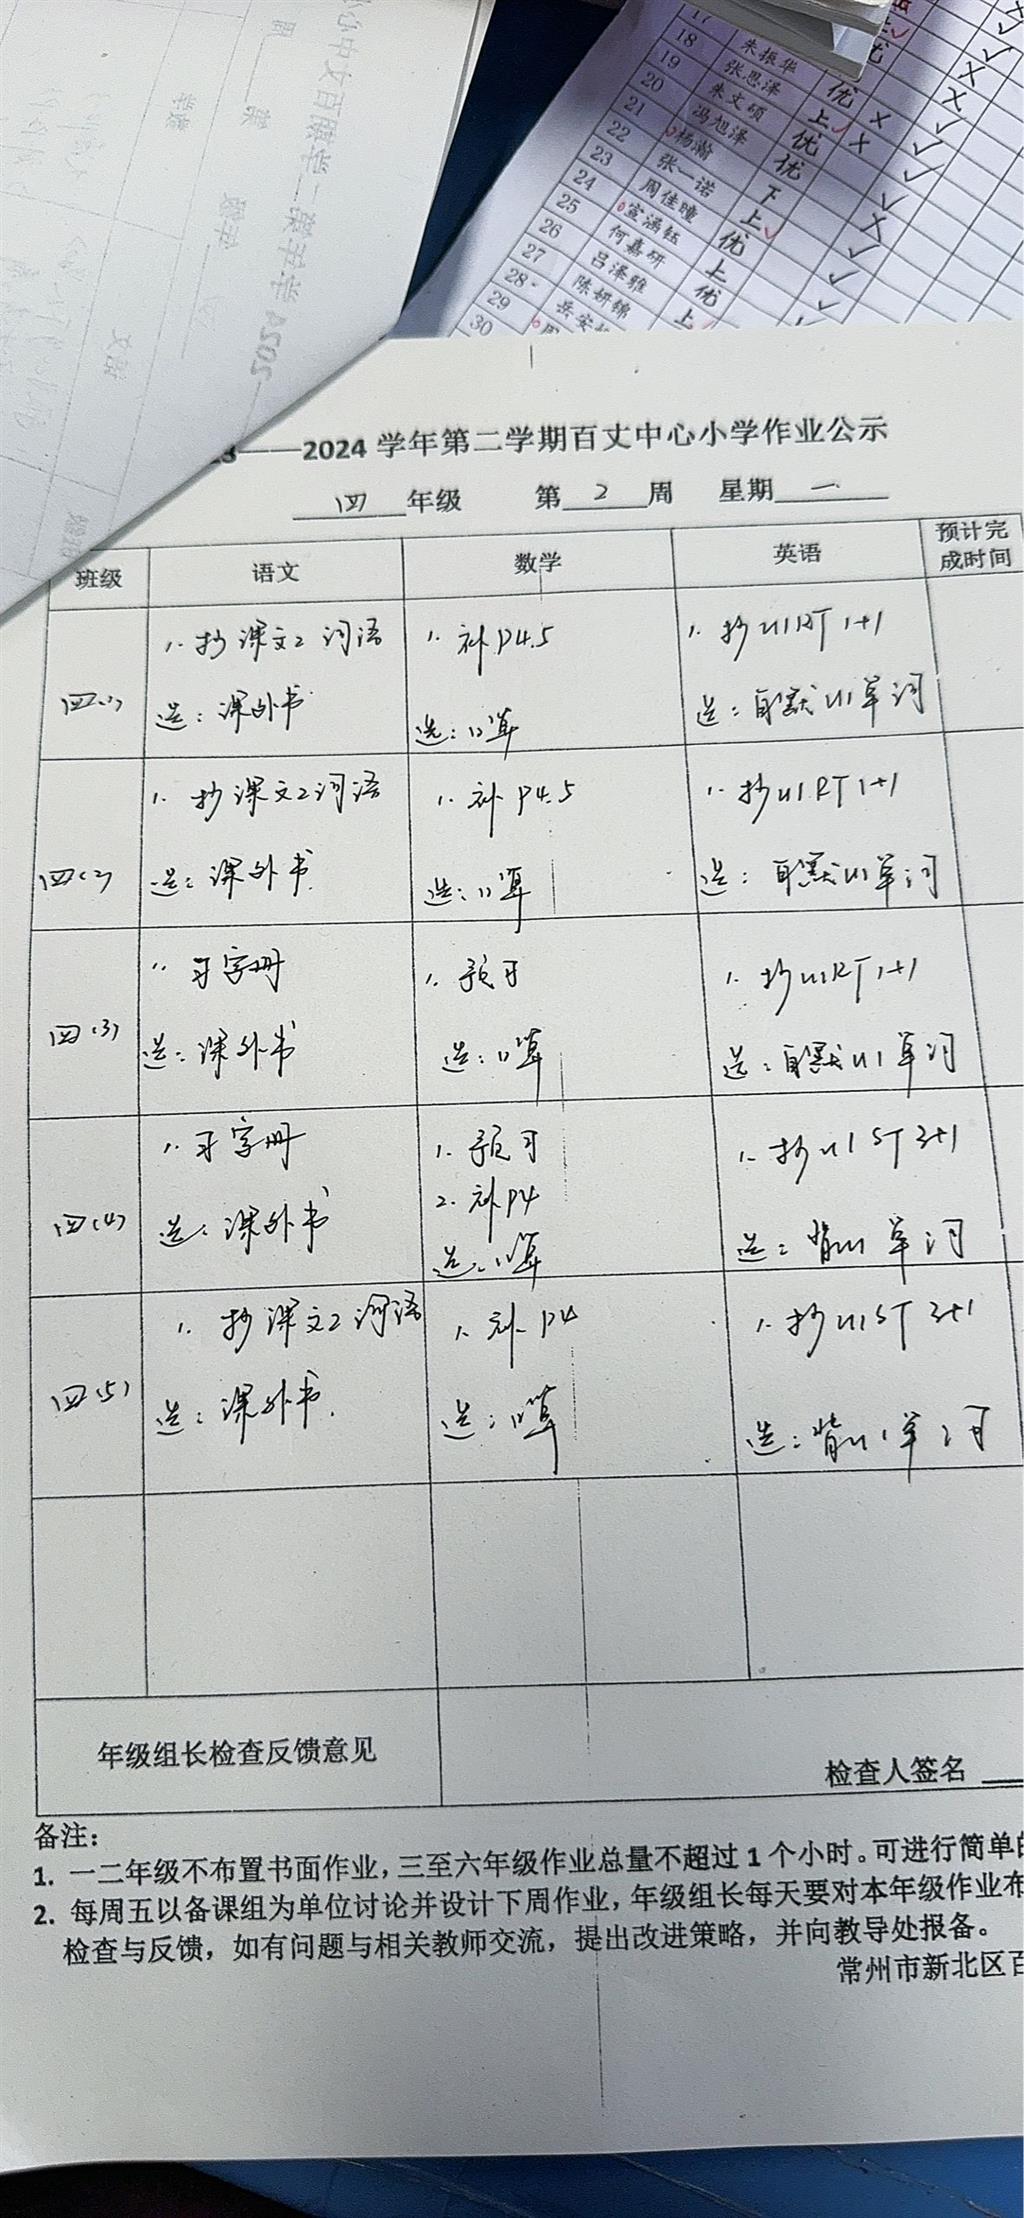 18 朱振华 优
19 张思泽 上 ✓ ×
20 朱文硕 优 ×
21 冯旭泽 优
22 杨瀚 下
23 张一诺 上 ✓
24 周佳曈 优
25 宣涵钰 上
26 何嘉研 优
27 吕泽雅
28 陈妍锦 上
29 岳安
30
——2024 学年第二学期百丈中心小学作业公示
四 年级 第 2 周 星期 一
班级 语文 数学 英语 预计完成时间
四(1) 1. 抄课文2词语 1. 补P4.5 1. 抄U1RT 1+1
选:课外书 选:口算 选:自默U1单词
四(2) 1. 抄课文2词语 1. 补P4.5 1. 抄U1RT 1+1
选:课外书 选:口算 选:自默U1单词
四(3) 1. 习字册 1. 预习 1. 抄U1RT 1+1
选:课外书 选:口算 选:自默U1单词
四(4) 1. 习字册 1. 预习 1. 抄U1ST 3+1
2. 补P4
选:课外书 选:口算 选:背U1单词
四(5) 1. 抄课文2词语 1. 补P4 1. 抄U1ST 3+1
选:课外书. 选:口算 选:背U1单词
年级组长检查反馈意见
检查人签名
备注:
1. 一二年级不布置书面作业,三至六年级作业总量不超过1个小时。可进行简单的
2. 每周五以备课组为单位讨论并设计下周作业,年级组长每天要对本年级作业布
检查与反馈,如有问题与相关教师交流,提出改进策略,并向教导处报备。
常州市新北区百